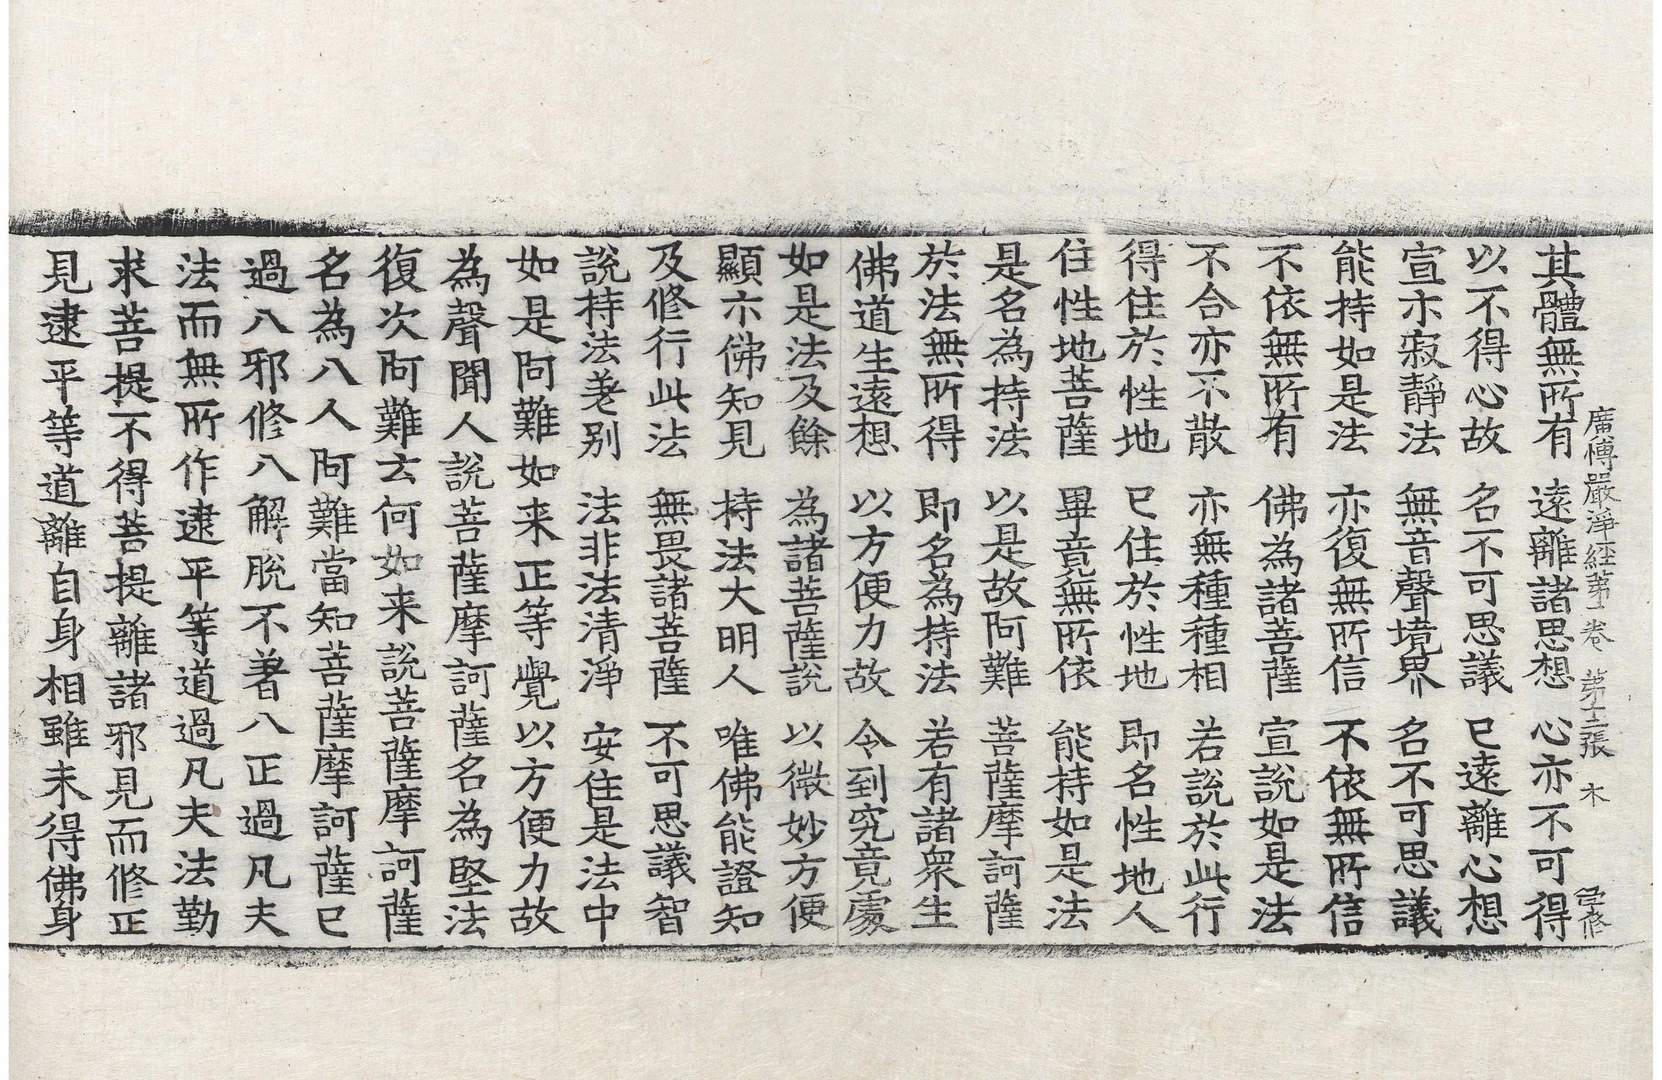 廣博嚴淨經第一卷 第十三張 木
其體無所有 遠離諸思想 心亦不可得
以不得心故 名不可思議 已遠離心想
宣示寂靜法 無音聲境界 名不可思議
能持如是法 亦復無所信 不依無所信
不依無所有 佛為諸菩薩 宣說如是法
不合亦不散 亦無種種相 若說於此行
得住於性地 已住於性地 即名性地人
住性地菩薩 畢竟無所依 能持如是法
是名為持法 以是故阿難 菩薩摩訶薩
於法無所得 即名為持法 若有諸衆生
佛道生遠想 以方便力故 令到究竟處
如是法及餘 為諸菩薩說 以微妙方便
顯示佛知見 持法大明人 唯佛能證知
及修行此法 無畏諸菩薩 不可思議智
說持法差別 法非法清淨 安住是法中
如是阿難如来正等覺以方便力故
為聲聞人說菩薩摩訶薩名為堅法
復次阿難云何如来說菩薩摩訶薩
名為八人阿難當知菩薩摩訶薩已
過八邪修八解脫不著八正過凡夫
法而無所作逮平等道過凡夫法勤
求菩提不得菩提離諸邪見而修正
見逮平等道離自身相雖未得佛身